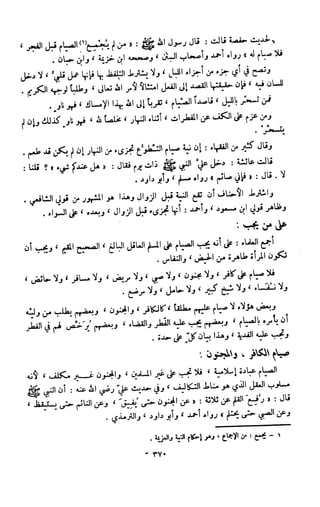 لحديث حفصة قالت : قال رسول الله ﷺ : « من لم يُجمِع(١) الصيام قبل الفجر ،
فلا صيام له » رواه أحمد وأصحاب السنن ، وصححه ابن خزيمة ، وابن حبان .
وتصح في أي جزء من أجزاء الليل ، ولا يشترط التلفظ بها فإنها عمل قلبي ، لا دخل
للسان فيه ، فإن حقيقتها القصد إلى الفعل امتثالاً لأمر الله تعالى ، وطلباً لوجهه الكريم .
فمن تسحر بالليل ، قاصداً الصيام ، تقرباً إلى الله بهذا الإمساك ، فهو ناو .
ومن عزم على الكف عن المفطرات ، أثناء النهار ، مخلصاً لله ، فهو ناو كذلك وإن لم
يتسحر .
وقال كثير من الفقهاء : إن نية صيام التطوع تجزىء من النهار إن لم يكن قد طعم .
قالت عائشة : دخل عليَّ النبي ﷺ ذات يوم فقال : « هل عندكم شيء » ؟ قلنا :
لا . قال : « فإني صائم » رواه مسلم ، وأبو داود .
واشترط الأحناف أن تقع النية قبل الزوال وهذا هو المشهور من قولي الشافعي .
وظاهر قولي ابن مسعود ، وأحمد : أنها تجزىء قبل الزوال ، وبعده ، على السواء .
على من يجب :
أجمع العلماء : على أنه يجب الصيام على المسلم العاقل البالغ ، الصحيح المقيم ، ويجب أن
تكون المرأة طاهرة من الحيض ، والنفاس .
فلا صيام على كافر ، ولا مجنون ، ولا صبي ، ولا مريض ، ولا مسافر ، ولا حائض ،
ولا نفساء ، ولا شيخ كبير ، ولا حامل ، ولا مرضع .
وبعض هؤلاء لا صيام عليهم مطلقاً ، كالكافر ، والمجنون ، وبعضهم يطلب من وليه
أن يأمره بالصيام ، وبعضهم يجب عليه الفطر والقضاء ، وبعضهم يُرخَّص لهم في الفطر
وتجب عليه الفدية ، وهذا بيان كلٍّ على حدة .
صيام الكافر ، والمجنون :
الصيام عبادة إسلامية ، فلا تجب على غير المسلمين ، والمجنون غير مكلف ، لأنه
مسلوب العقل الذي هو مناط التكاليف ، وفي حديث علي رضي الله عنه : أن النبي ﷺ
قال : « رُفِعَ القلم عن ثلاثة : » عن المجنون حتى يُفيق ، وعن النائم حتى يستيقظ ،
وعن الصبي حتى يحتلم » رواه أحمد ، وأبو داود ، والترمذي .
١ - يجمع : من الإجماع ، وهو إحكام النية والعزيمة .
- ٣٧٠ -